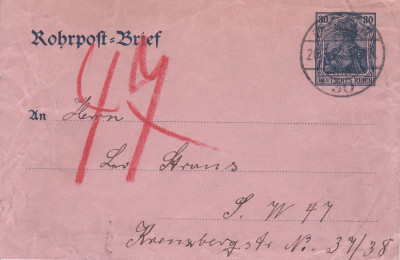 30 30
Rohrpost-Brief
DEUTSCHES REICH
30
47
An Herrn
Leo Strans
S. W 47
Kreuzbergstr No. 37/38